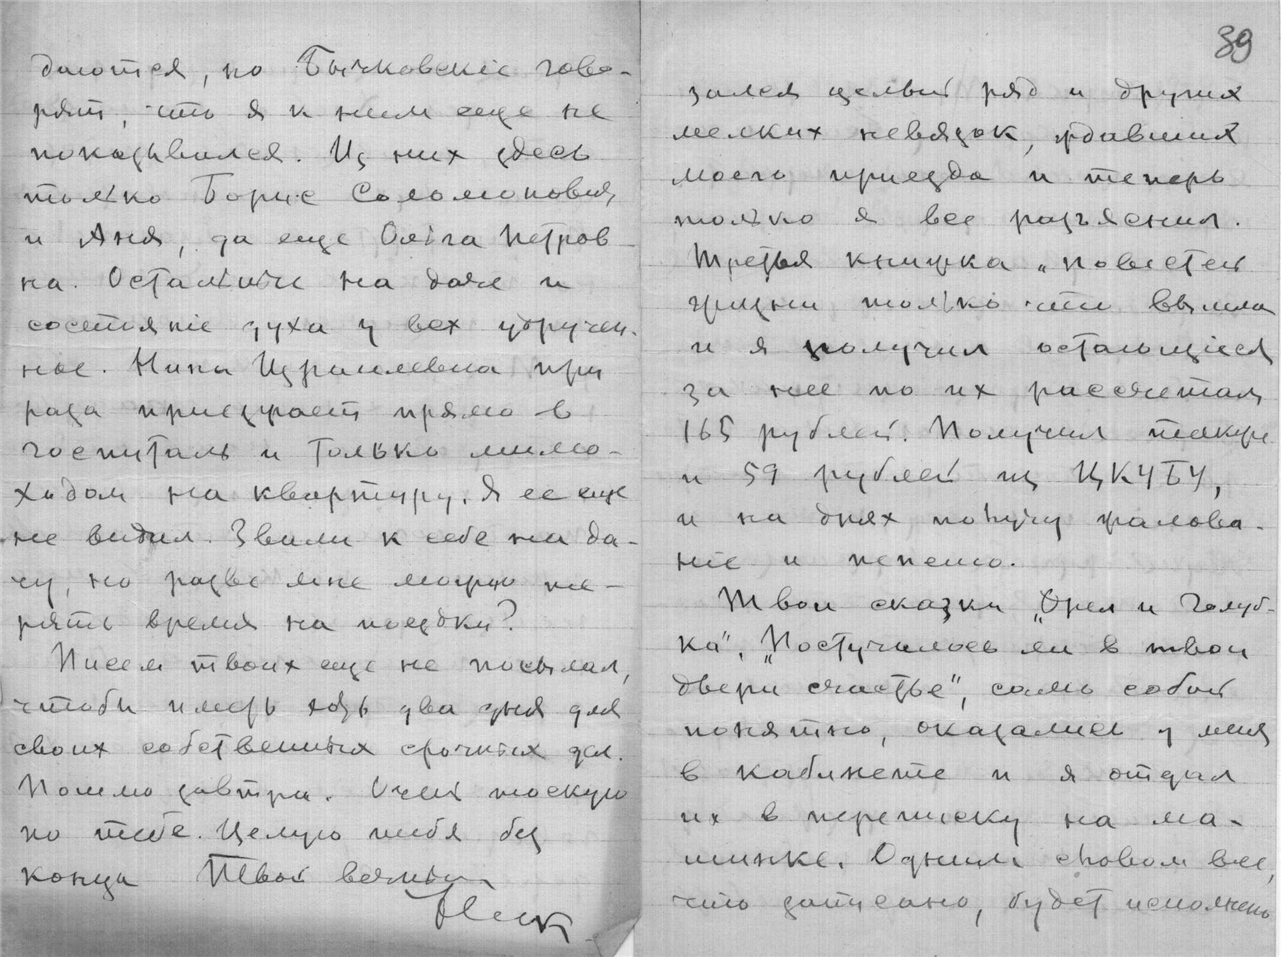 даются, но Бычковскіе гово-
рят, что я к ним еще не
показывался. Из них здесь
только Борис Соломонович
и Аня, да еще Ольга Петров-
на. Остальные на даче и
состояніе духа у всех удручен-
ное. Нина Израилевна три
раза приезжает прямо в
госпиталь и только мимо-
ходом на квартиру. Я ее еще
не видел. Звали к себе на да-
чу, но разве мне можно те-
рять время на поездки?
Писем твоих еще не посылал,
чтобы иметь хоть два дня для
своих собственных срочных дел.
Пошлю завтра. Очень тоскую
по тебе. Целую тебя без
конца Твой вечный
39
зался целый ряд и других
мелких невязок, ждавших
моего приезда и теперь
только я все разъяснил.
Третья книжка „повестей
жизни только что вышла
и я получил остающіеся
за нее по их рассчетам
165 рублей. Получил также
и 59 рублей из ЦКУБУ,
и на днях получу жалова-
ніе и пенсию.
Твои сказки „Орел и Голуб-
ка", „Постучалось ли в твои
двери счастье", само собой
понятно, оказались у меня
в кабинете и я отдал
их в переписку на ма-
шинке. Одним словом все,
что записано, будет исполнено